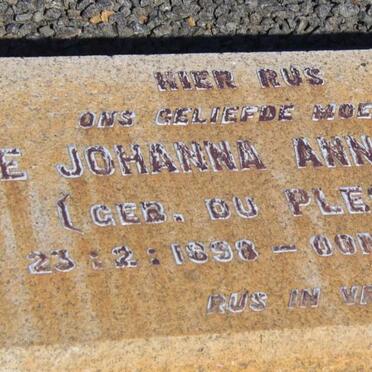 HIER RUS
ONS GELIEFDE MOE
E JOHANNA ANN
(GER. DU PLE
23:2:1898 – OOR
RUS IN VR